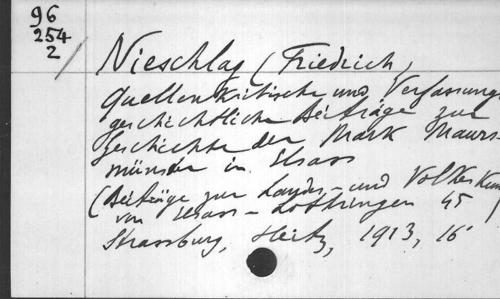 96
254
2
Nieschlag (Friedrich,
Quellenkritische und Verfassungs
geschichtliche Beiträge zur
Geschichte der Mark Maurs-
münster in Elsass
(Beiträge zur Landes- und Volkeskun
von Elsass-Lothringen 45)
Strassburg, Heitz, 1913, 16°